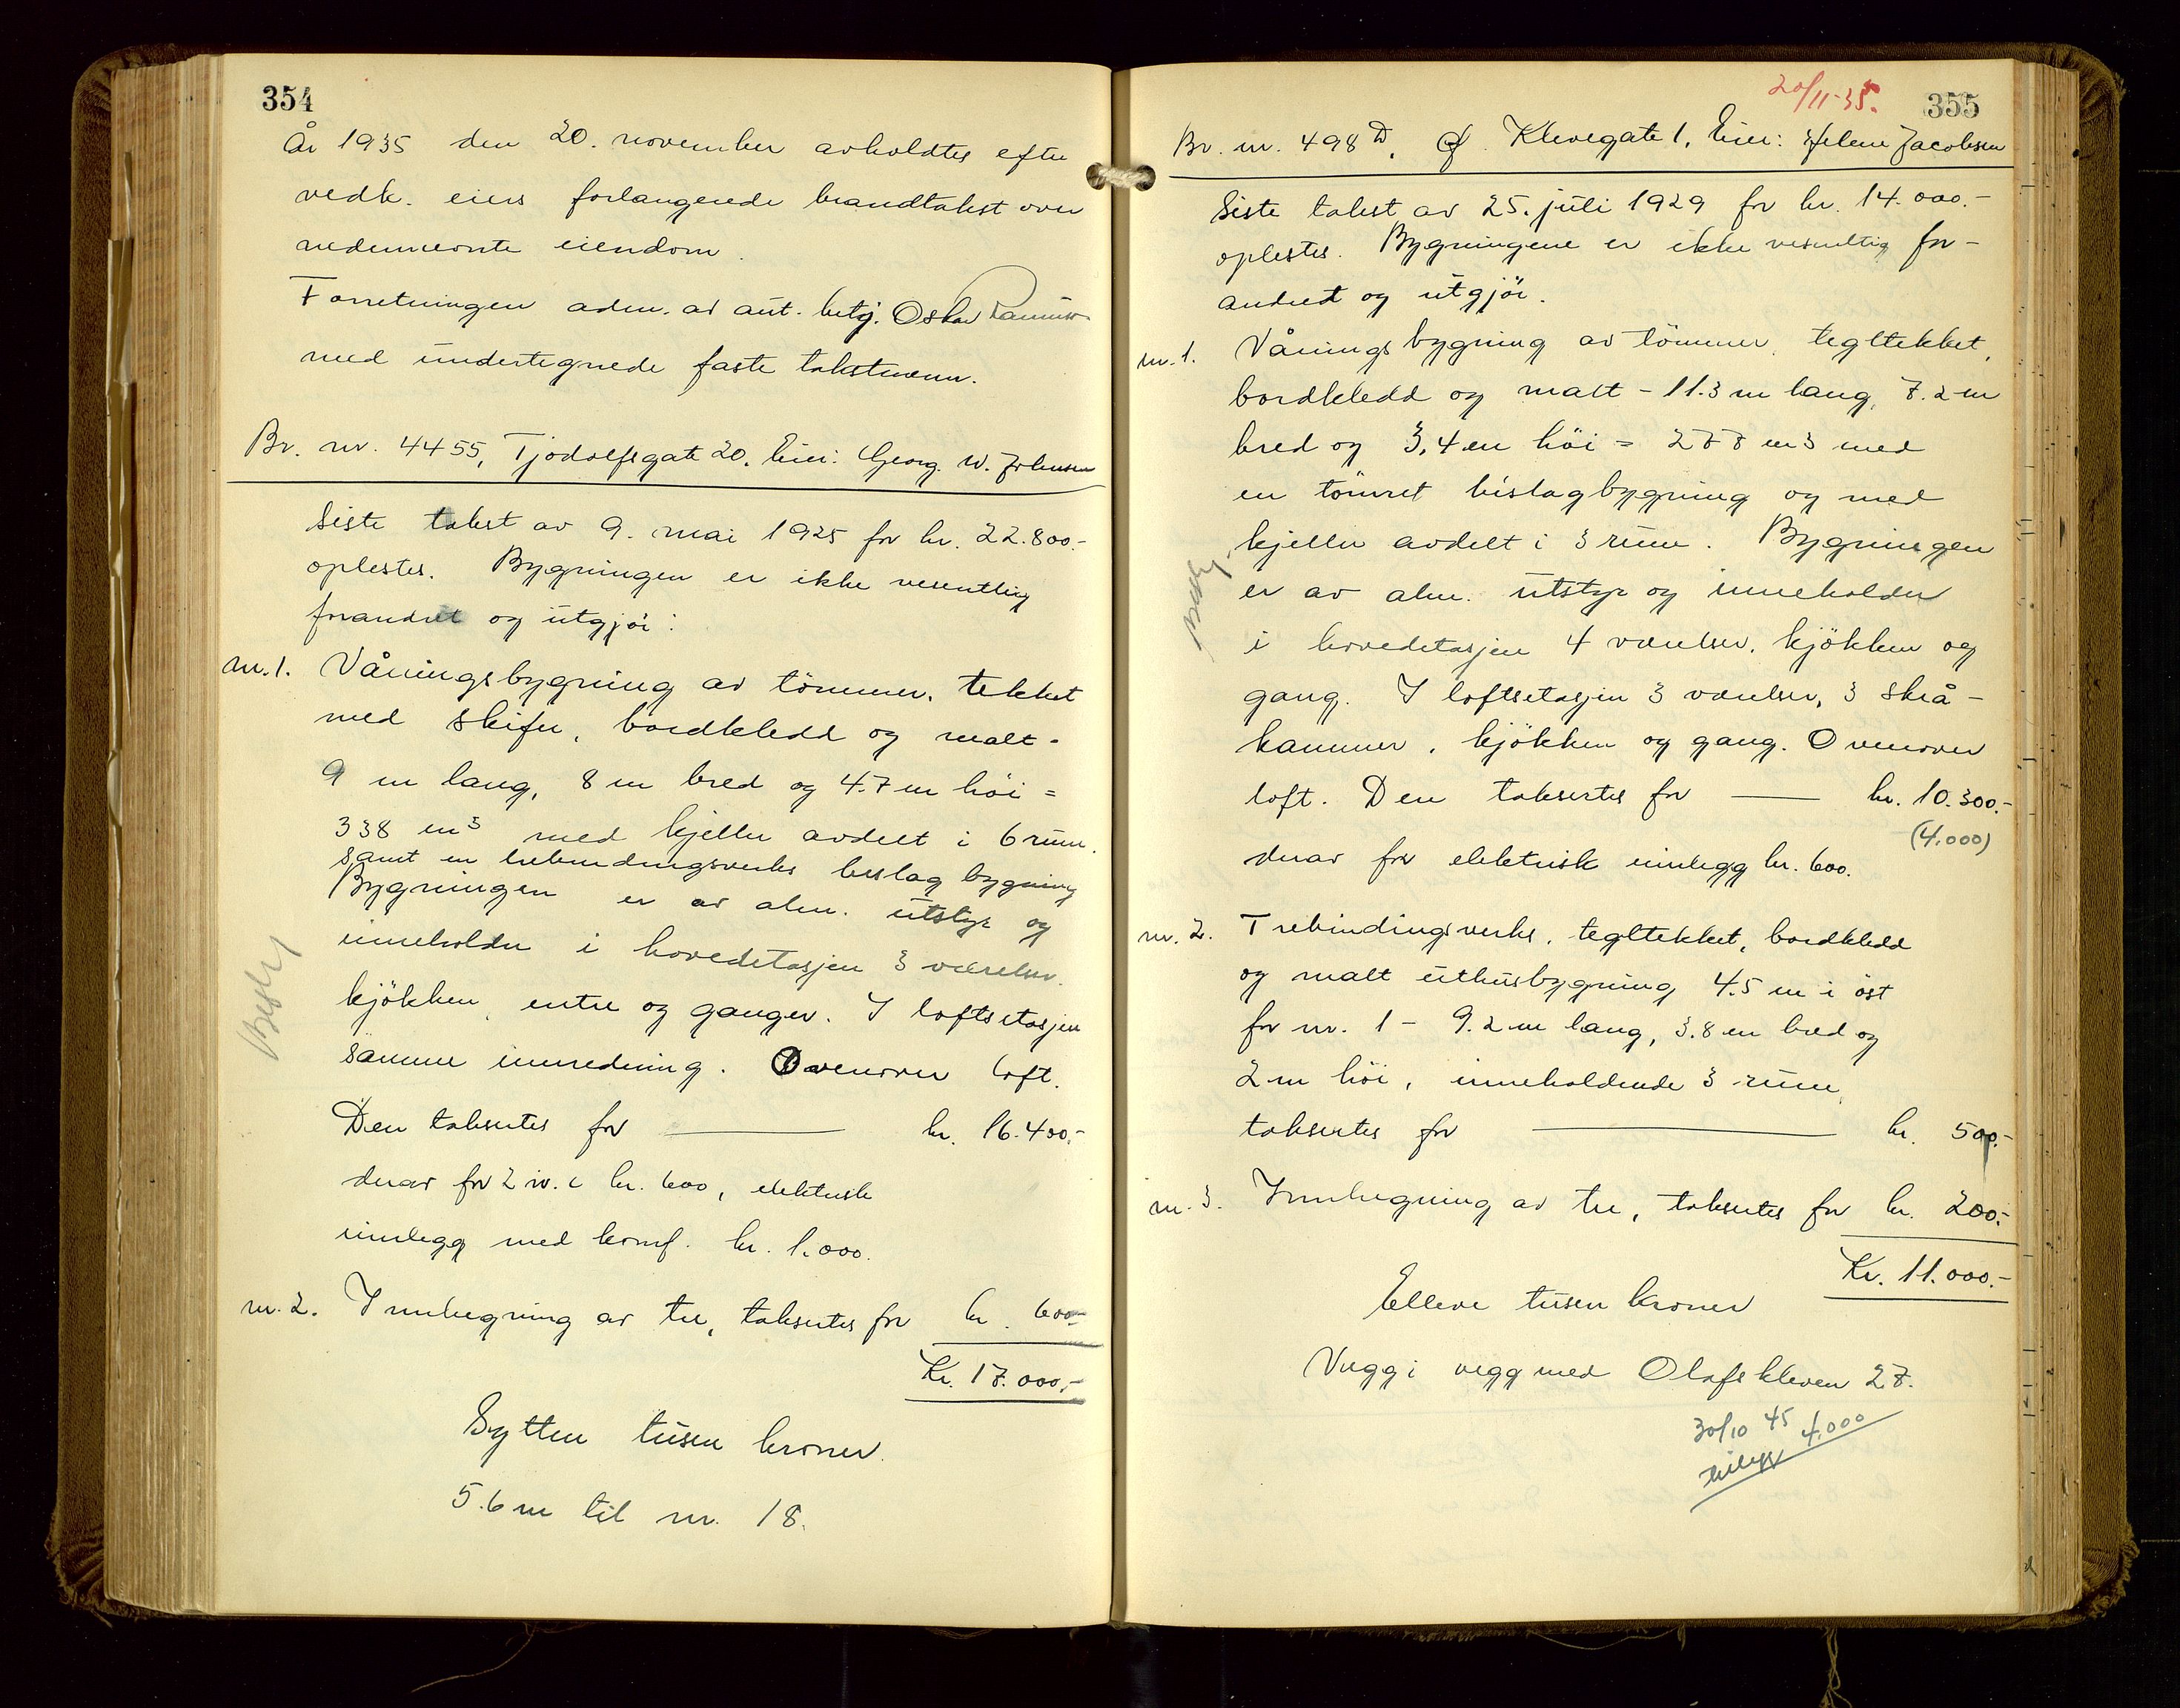 354
År 1935 den 20. november avholdtes efter
vedk. eiers forlangende brandtakst over
nedennevnte eiendom.
Forretningen adm. av aut. betj. Oskar
med undertegnede faste takstmenn.
Br. nr. 4455, Tjodolfsgate 20. Eier: Georg. W. Johnsen
Siste takst av 9. mai 1925 for kr. 22.800.-
oplestes. Bygningen er ikke vesentlig
forandret og utgjør:
nr. 1. Våningsbygning av tømmer, tekket
med skifer, bordkledd og malt -
9 m lang, 8 m bred og 4.7 m høi =
338 m3 med kjeller avdelt i 6 rum.
samt en trebindingsverks bislag bygning
Bygningen er av alm. utstyr og
inneholder i hovedetasjen 3 værelser.
kjøkken, entre og ganger. I loftsetasjen
samme innredning. Ovenover loft.
Den taksertes for kr. 16.400.-
derav for 2 w.c kr. 600, elektrisk
innlegg med komf. kr. 1.000.
nr. 2. Innhegning av tre, taksertes for kr. 600.-
Kr. 17.000.-
Sytten tusen kroner.
5.6 m til nr. 18.
20/11-35.
355
Br. nr. 498 D, Klevegate 1, Eier: Helene Jacobsen
Siste takst av 25. juli 1929 for kr. 14.000.-
oplestes. Bygningene er ikke vesentlig for-
andret og utgjør.
nr. 1. Våningsbygning av tømmer, tegltekket,
bordkledd og malt - 11.3 m lang, 7.2 m
bred og 3,4 m høi = 277 m3 med
en tømret bislagbygning og med
kjeller avdelt i 3 rum. Bygningen
er av alm. utstyr og inneholder
i hovedetasjen 4 værelser, kjøkken og
gang. I loftsetasjen 3 værelser, 3 skrå-
kammer, kjøkken og gang. Ovenover
loft. Den taksertes for kr. 10.300.-
(4.000)
derav for elektrisk innlegg kr. 600.
nr. 2. Trebindingsverks, tegltekket, bordkledd
og malt uthusbygning 4.5 m i øst
for nr. 1 - 9.2 m lang, 3.8 m bred og
2 m høi, inneholdende 3 rum,
taksertes for kr. 500.-
nr. 3. Innhegning av tre, taksertes for kr. 200.-
Kr. 11.000.-
Elleve tusen kroner
Vegg i vegg med Olafskleven 27.
30/10 45 4.000
tillegg